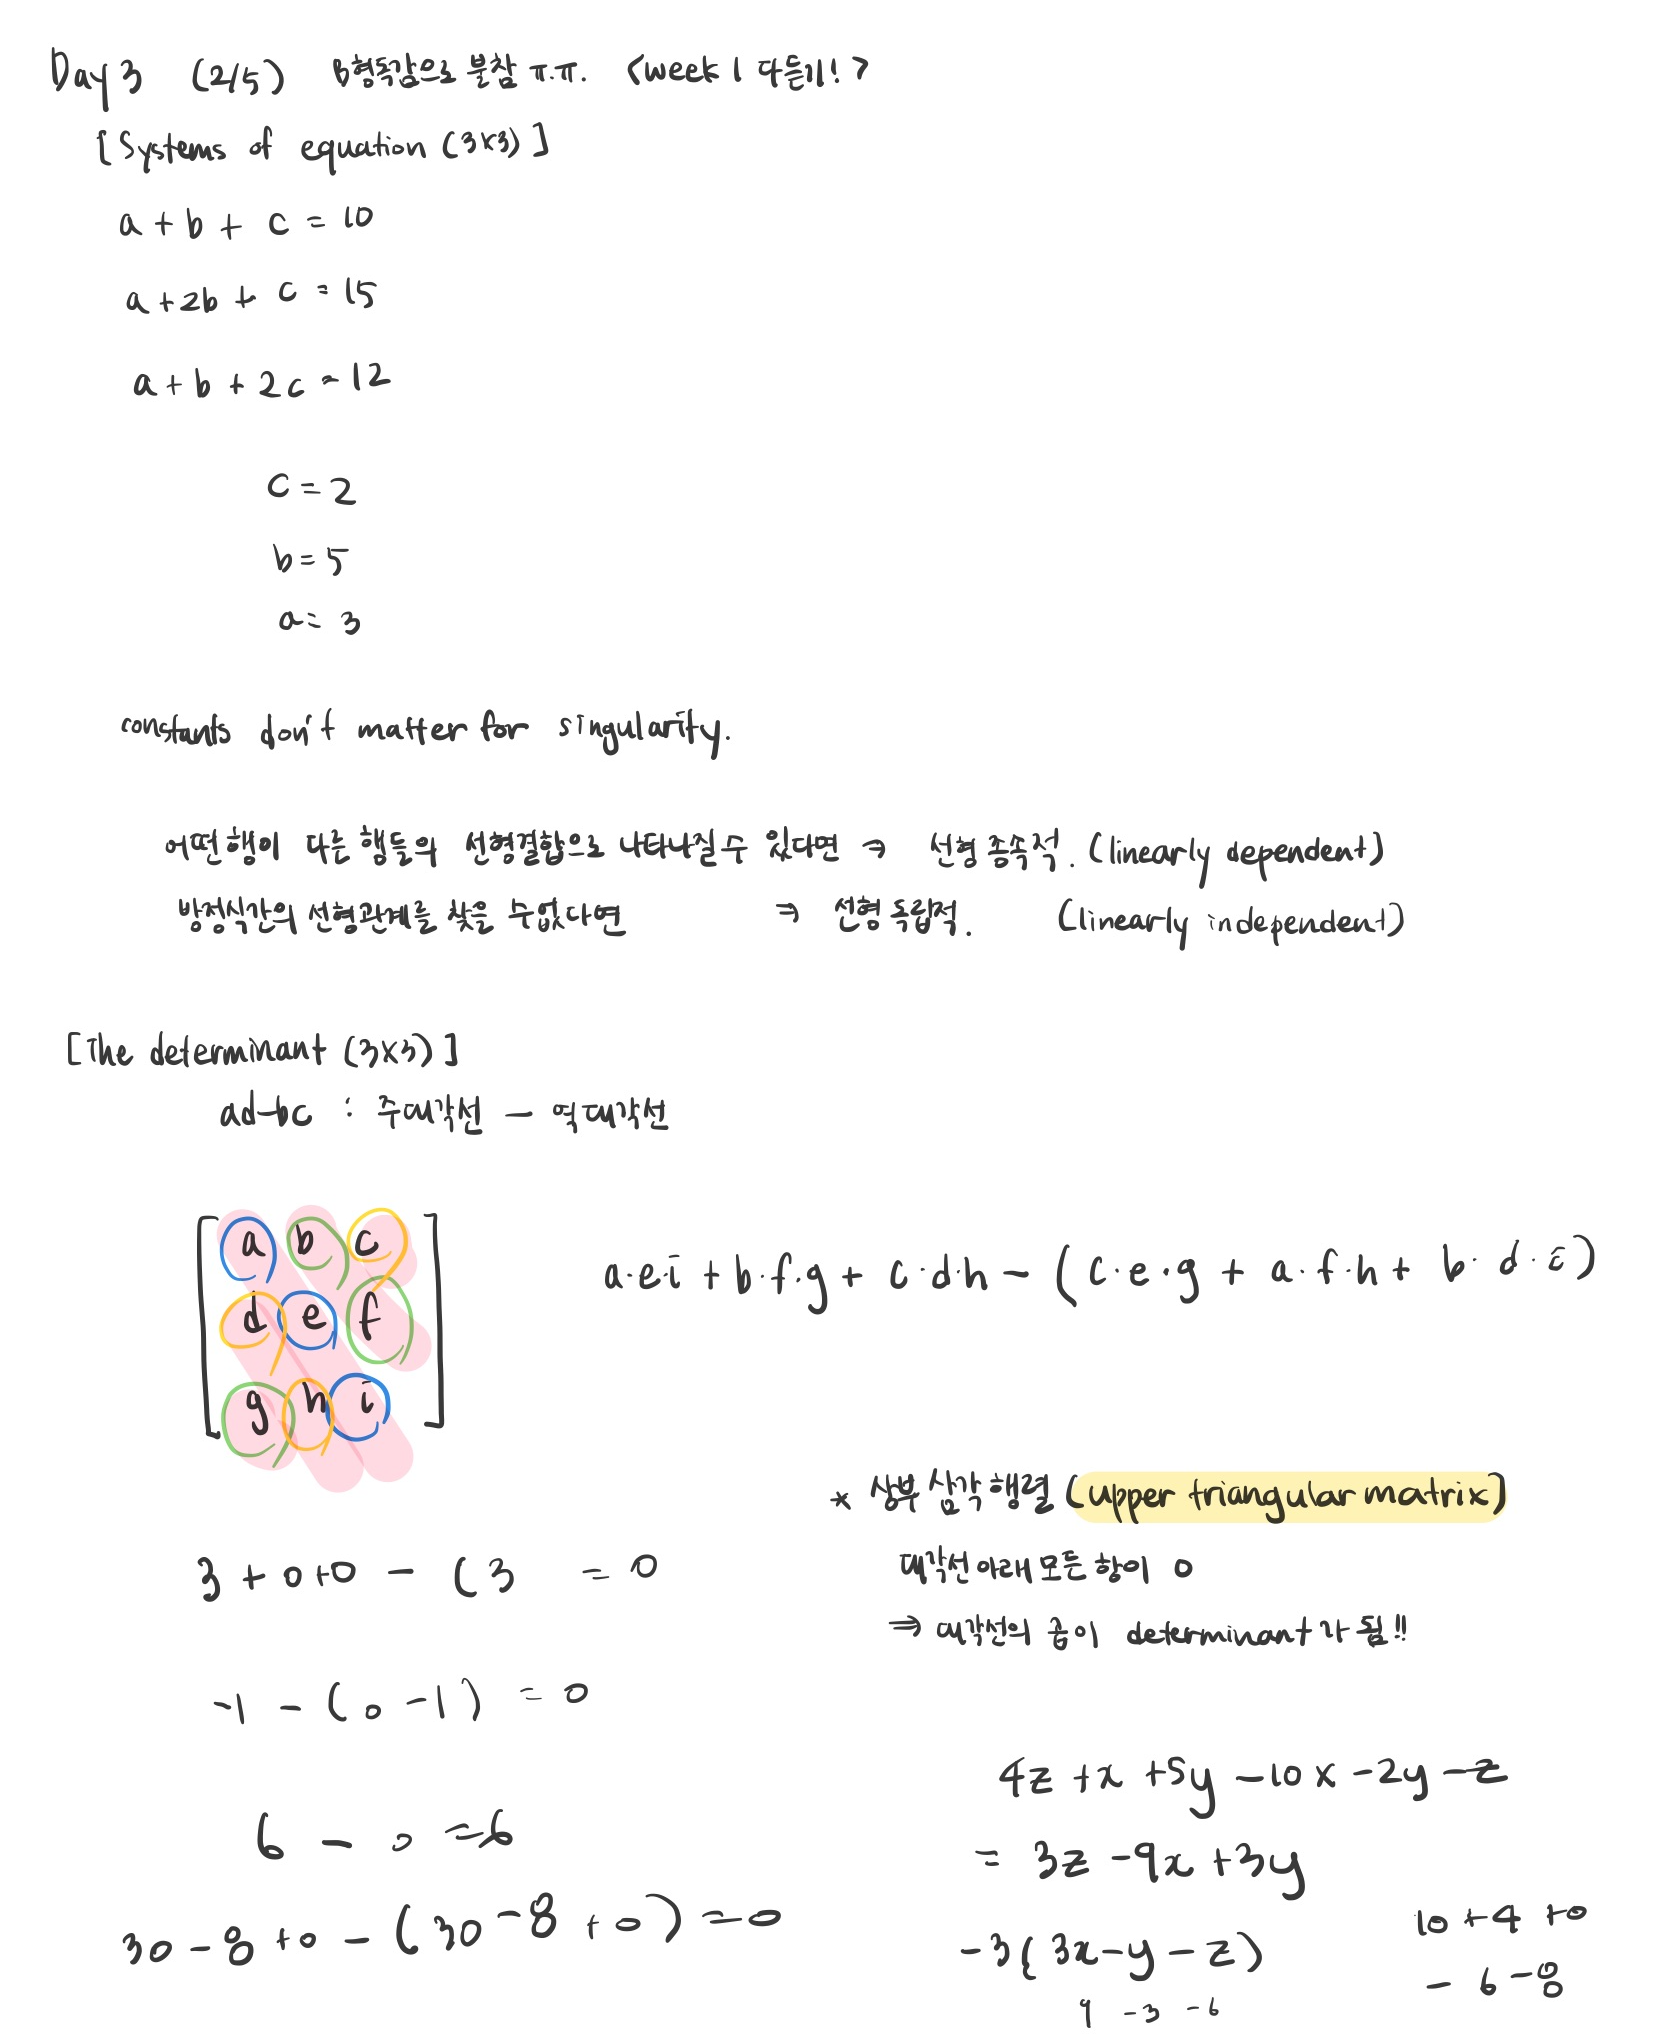 Day 3 (2/5) B형독감으로 불참 ㅠ.ㅠ. <week 1 다듣기! >
[Systems of equation (3x3)]
a + b + c = 10
a + 2b + c = 15
a + b + 2c = 12
c = 2
b = 5
a = 3
constants don't matter for singularity.
어떤행이 다른 행들의 선형결합으로 나타나질 수 있다면 ⇒ 선형 종속적. (linearly dependent)
방정식간의 선형관계를 찾을 수 없다면 ⇒ 선형 독립적. (linearly independent)
[The determinant (3x3)]
ad-bc : 주대각선 - 역대각선
a b c
d e f
g h i
a·e·i + b·f·g + c·d·h - (c·e·g + a·f·h + b·d·i)
* 상부 삼각 행렬 (upper triangular matrix)
대각선 아래 모든 항이 0
⇒ 대각선의 곱이 determinant가 됨!!
3 + 0 + 0 - (3 = 0
-1 - (0 -1) = 0
6 - 0 = 6
30 - 8 + 0 - (30 - 8 + 0) = 0
4z + x + 5y - 10x - 2y - z
= 3z - 9x + 3y
-3(3x - y - z)
9 -3 -6
10 + 4 + 0
- 6 - 8